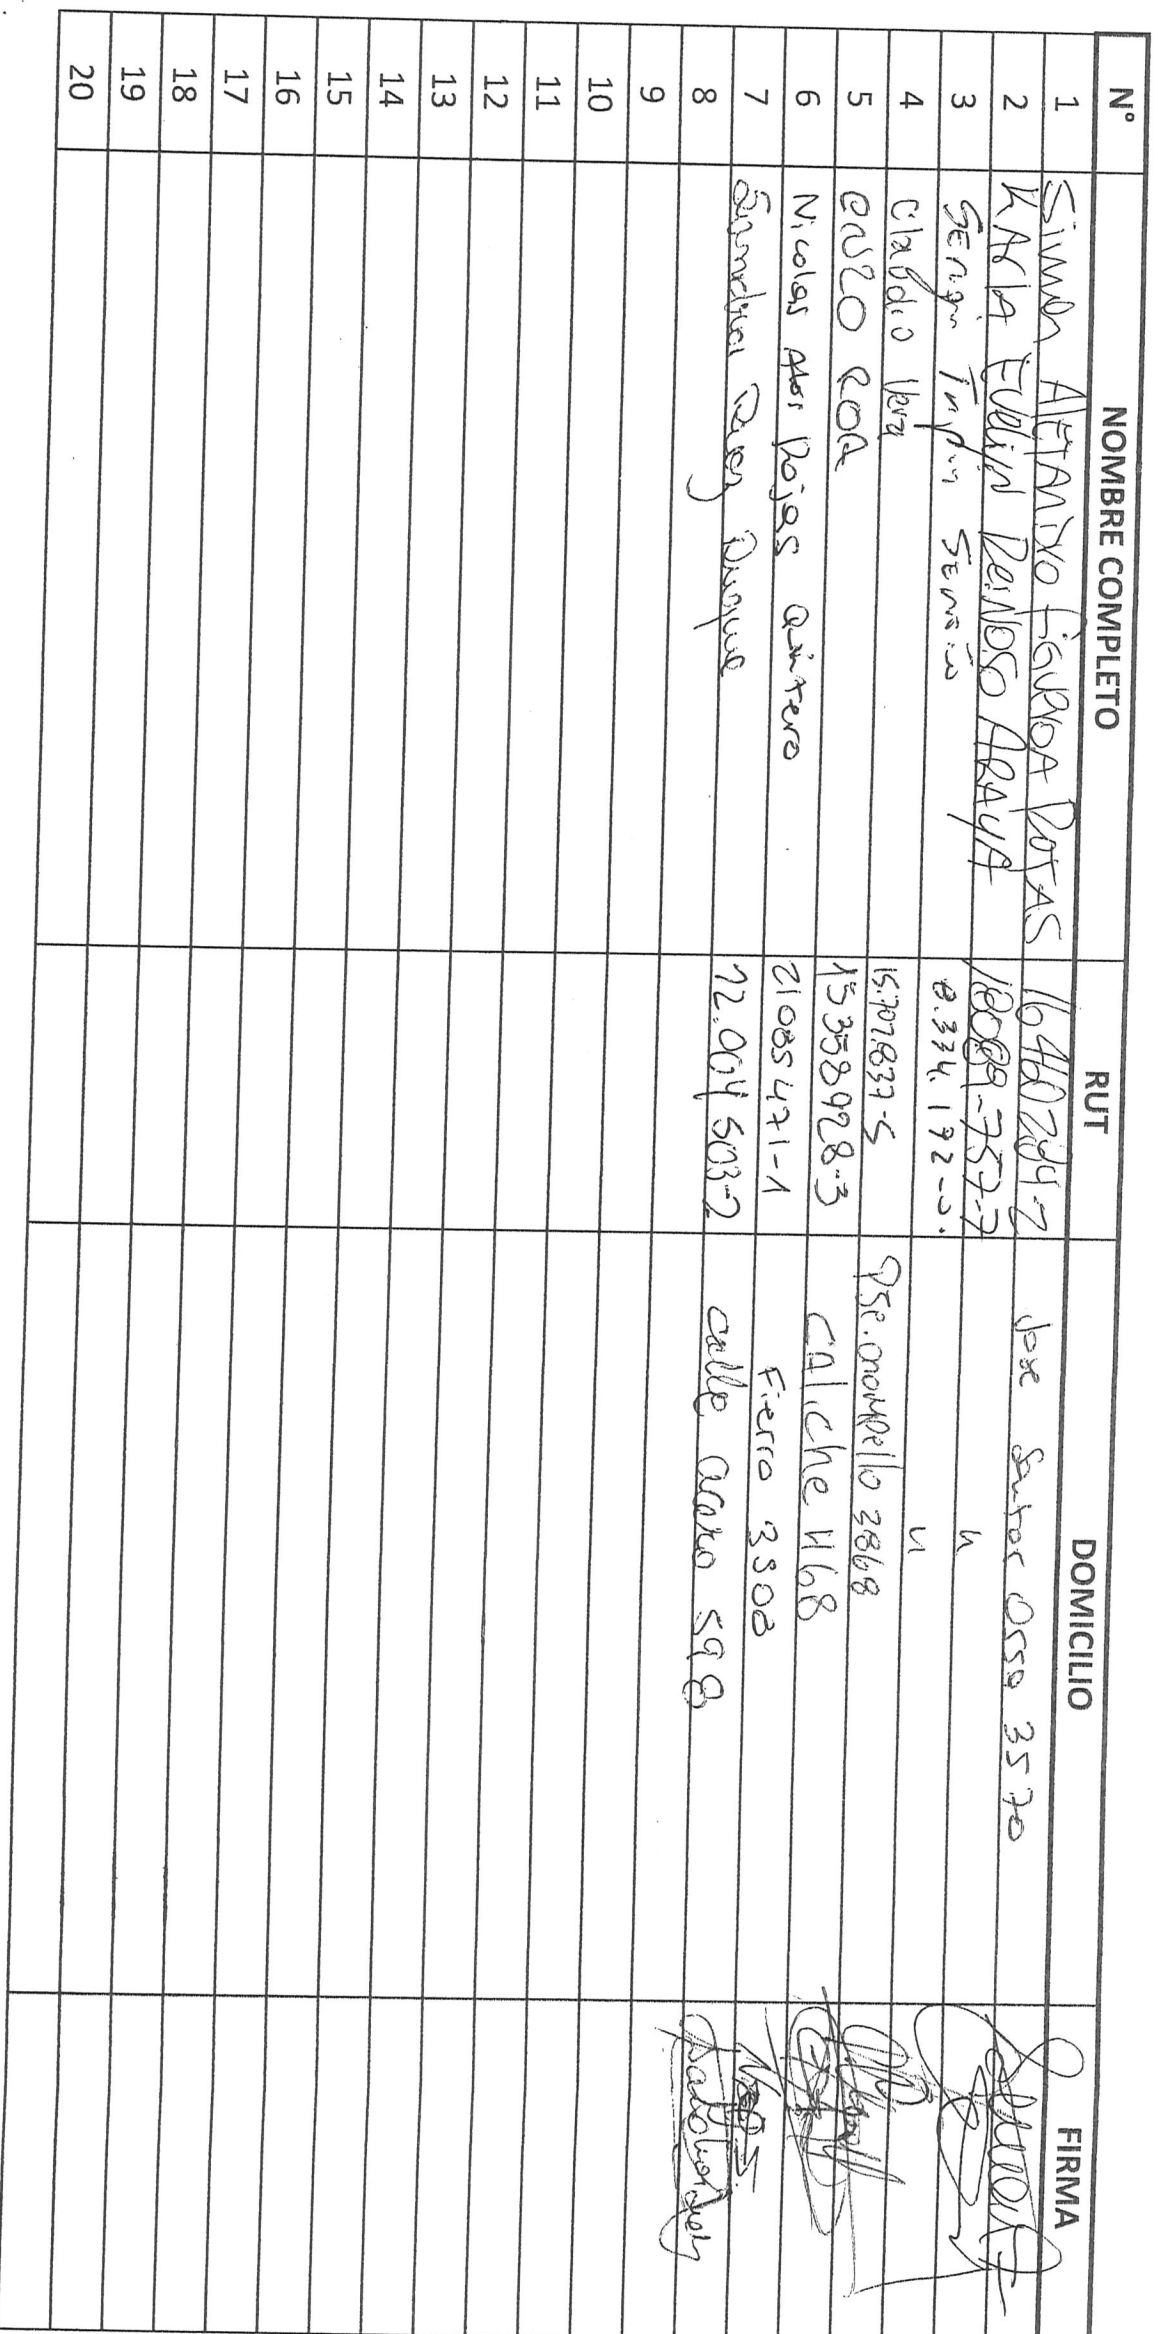 N° NOMBRE COMPLETO RUT DOMICILIO FIRMA
1 Simon Alejandro Figueroa Rojas 16460294-2 Jose Santos Ossa 3570
2 KARLA EVELIN ReiNOSO ARAYA 18089-757-7 "
3 Sergio 8.334.192- "
4 Claudio Vera 15.707.837-5 Pje. Onompello 2868
5 ENZO ROA 15358928-3 CAliche 1168
6 Nicolas Rojas Quintero 21085471-1 Fierro 3308
7 Perez Duque 22.064503-2 calle 598
8
9
10
11
12
13
14
15
16
17
18
19
20